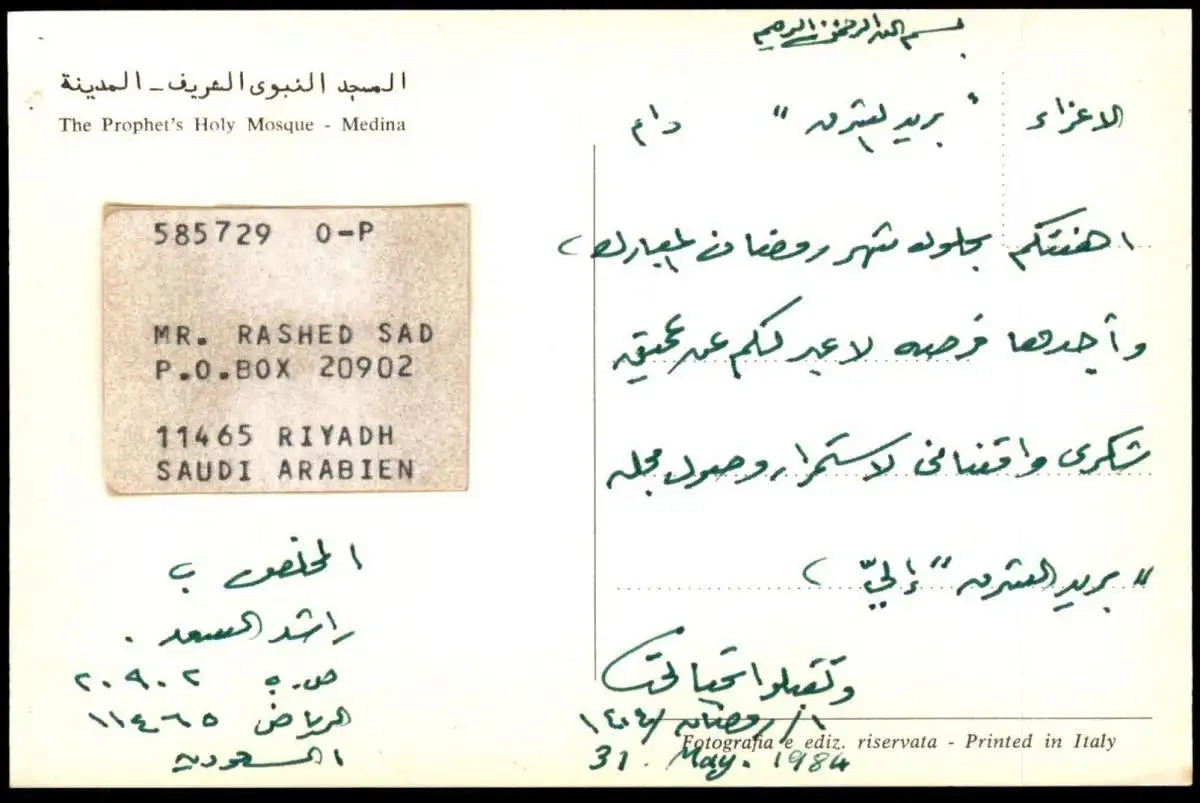 المسجد النبوى الشريف - المدينة
The Prophet's Holy Mosque - Medina
585729 O-P
MR. RASHED SAD
P.O.BOX 20902
11465 RIYADH
SAUDI ARABIEN
المخلص
راشد السعد .
ص.ب ٢٠٩٠٢
الرياض ١١٤٦٥
السعودية
بسم الله الرحمن الرحيم
الاعزاء " بريد الشرق "
اهنئكم بحلول شهر رمضان المبارك،
وأجدها فرصه لاعبر لكم عن عميق
شكرى وامتنانى لاستمرار وصول مجله
" بريد الشرق " إليّ ،
وتقبلوا تحياتى
١/ رمضان /١٤٠٤
31. May. 1984
Fotografia e ediz. riservata - Printed in Italy